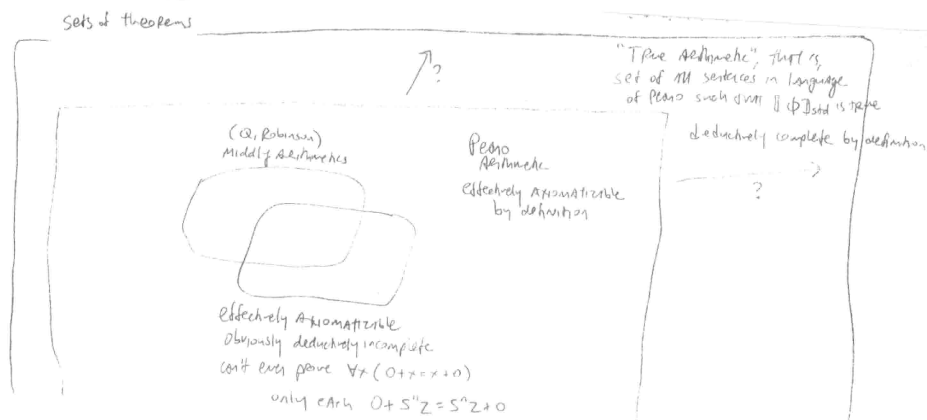 Sets of theorems
?
"True Arithmetic", that is,
set of all sentences in language
of Peano such that ⟦Φ⟧std is true
deductively complete by definition
?
(Q, Robinson)
Middly Arithmetics
Peano
Arithmetic
effectively AXIOMATIZABLE
by definition
effectively AXIOMATIZABLE
Obviously deductively incomplete
can't even prove ∀x (0+x=x+0)
only each 0+SⁿZ=SⁿZ+0